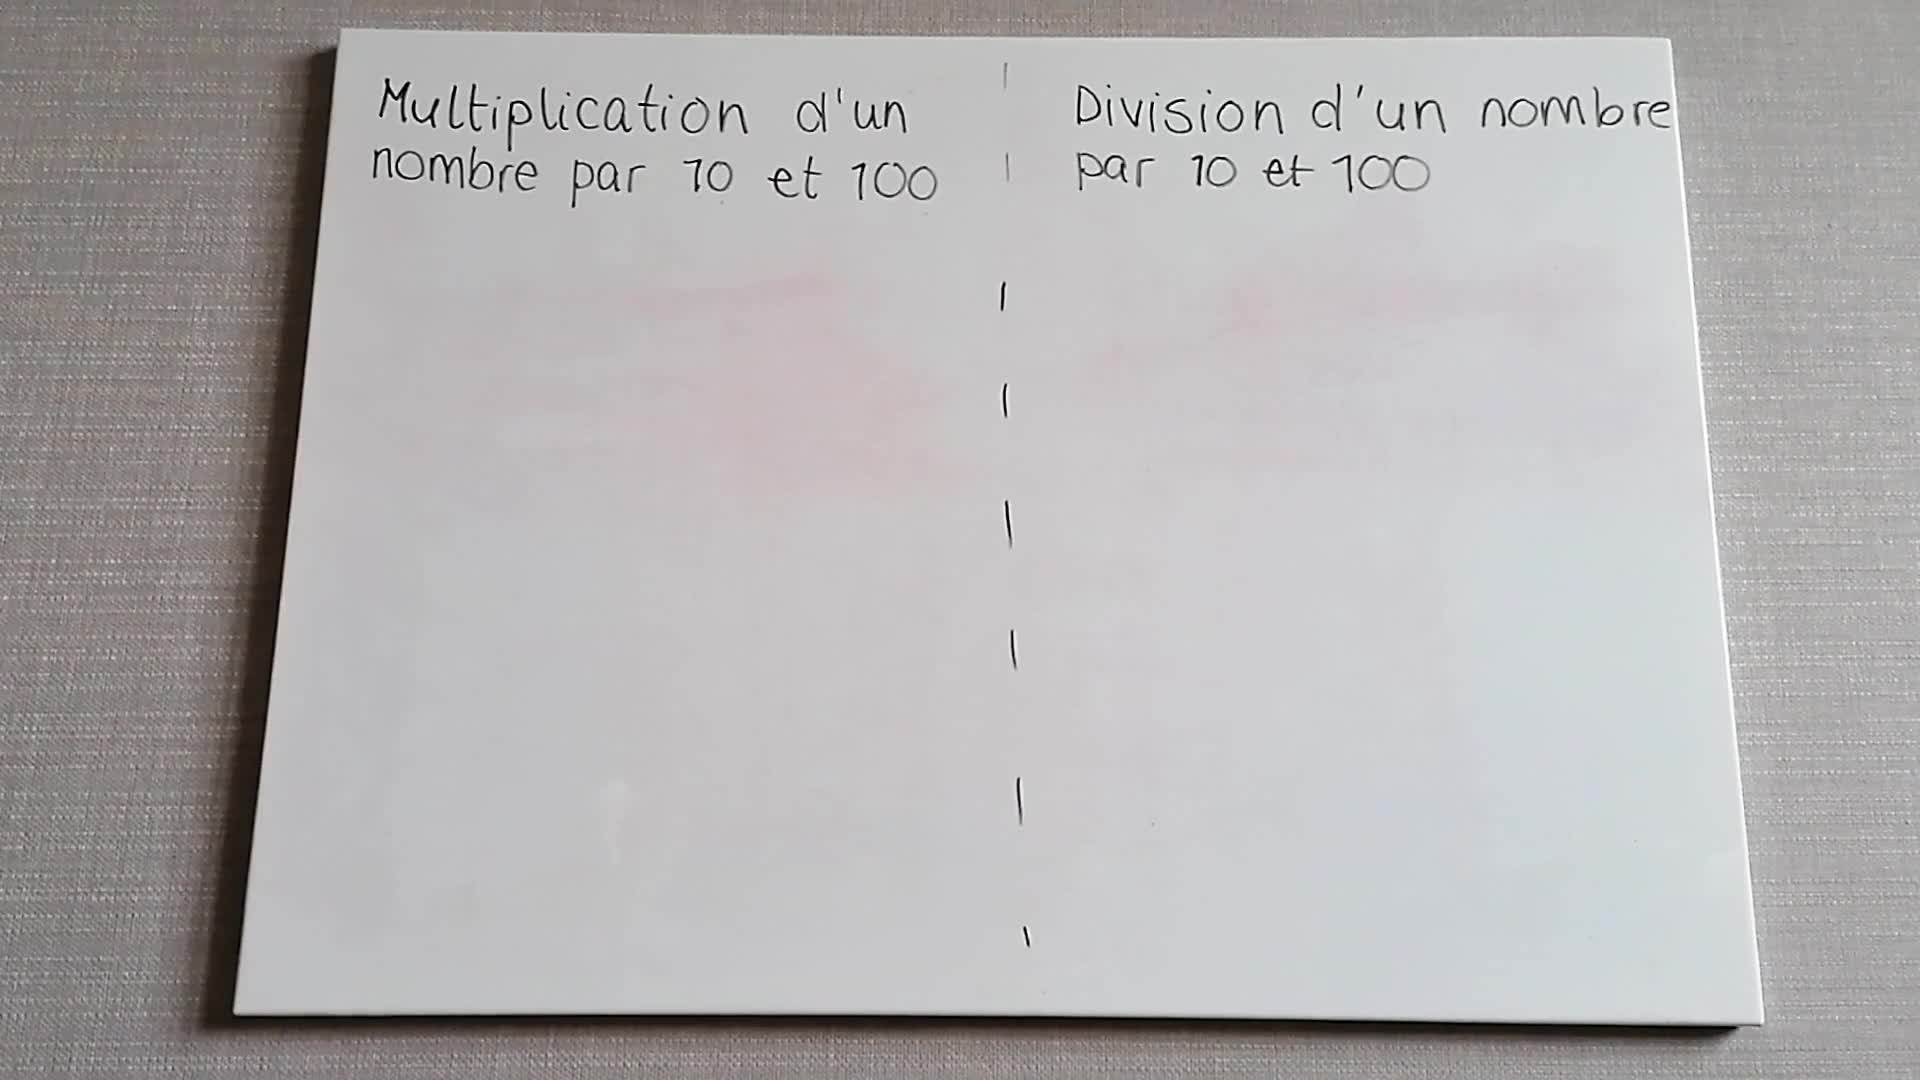 Multiplication d'un
nombre par 10 et 100
Division d'un nombre
par 10 et 100